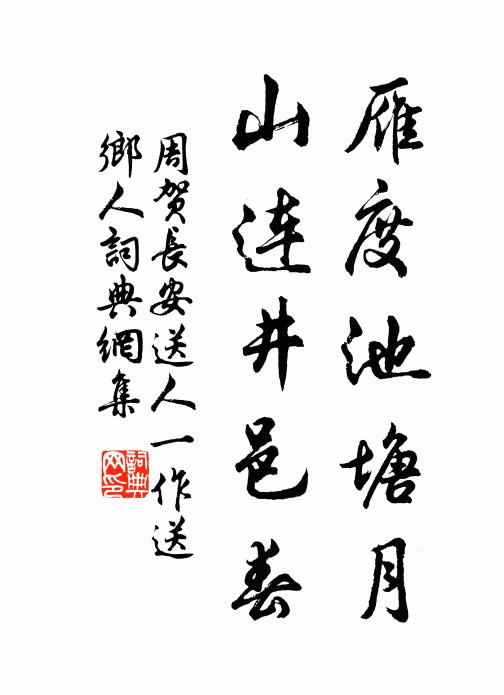 雁度池塘月
山連井邑春
周贺長安送人一作送
鄉人詞典網集
詞典网印